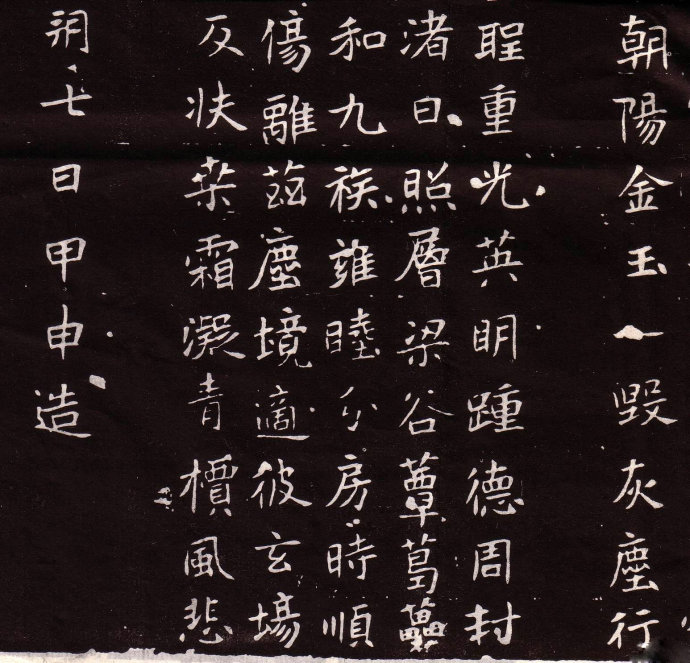 朝陽金玉一毀灰塵行
聖重光英明踵德周封
渚日照層梁谷蕈葛虆
和九族雍睦分房時順
傷離茲塵境適彼玄場
反狀桒霜凝青檟風悲
朔七日甲申造